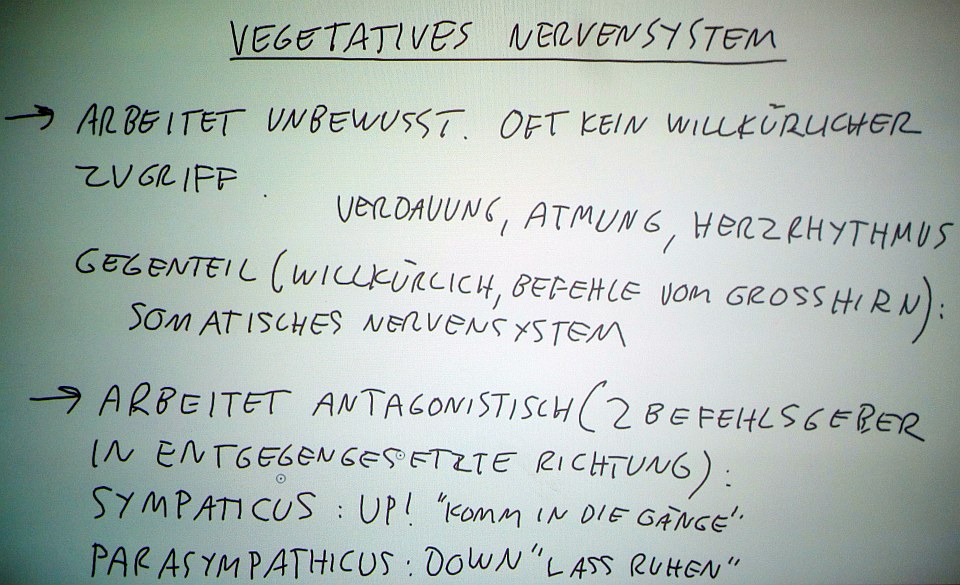 VEGETATIVES NERVENSYSTEM
→ ARBEITET UNBEWUSST. OFT KEIN WILLKÜRLICHER
ZUGRIFF.
VERDAUUNG, ATMUNG, HERZRHYTHMUS
GEGENTEIL (WILLKÜRLICH, BEFEHLE VOM GROSSHIRN):
SOMATISCHES NERVENSYSTEM
→ ARBEITET ANTAGONISTISCH (2 BEFEHLSGEBER
IN ENTGEGENGESETZTE RICHTUNG):
SYMPATICUS: UP! "KOMM IN DIE GÄNGE"
PARASYMPATHICUS: DOWN "LASS RUHEN"